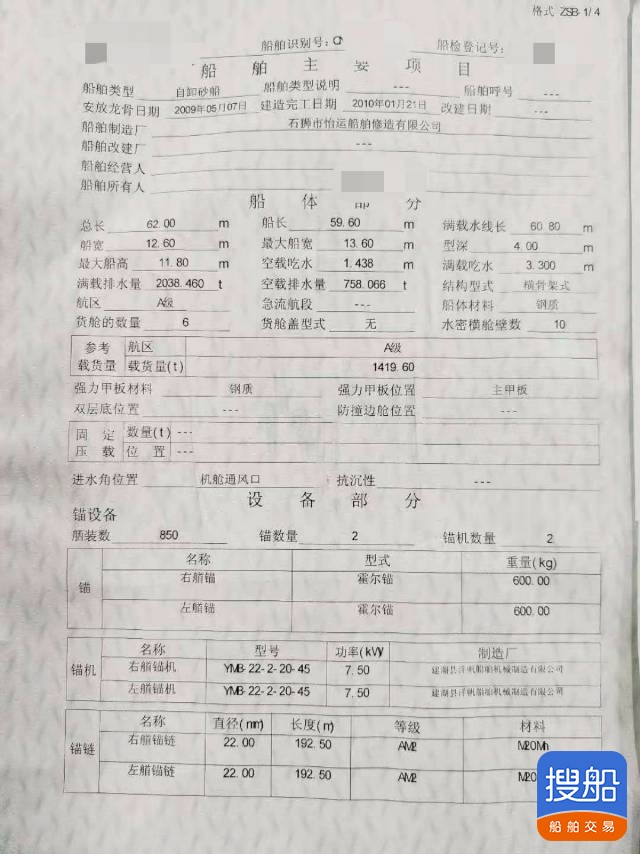 格式 ZSB-1/4
船舶识别号: 船检登记号:
船舶主要项目
船舶类型 自卸砂船 船舶类型说明 --- 船舶呼号 ---
安放龙骨日期 2009年05月07日 建造完工日期 2010年01月21日 改建日期 ---
船舶制造厂 石狮市怡运船舶修造有限公司
船舶改建厂 ---
船舶经营人
船舶所有人
船体部分
总长 62.00 m 船长 59.60 m 满载水线长 60.80 m
船宽 12.60 m 最大船宽 13.60 m 型深 4.00 m
最大船高 11.80 m 空载吃水 1.438 m 满载吃水 3.300 m
满载排水量 2038.460 t 空载排水量 758.066 t 结构型式 横骨架式
航区 A级 急流航段 --- 船体材料 钢质
货舱的数量 6 货舱盖型式 无 水密横舱壁数 10
参考 航区 A级
载货量 载货量(t) 1419.60
强力甲板材料 钢质 强力甲板位置 主甲板
双层底位置 --- 防撞边舱位置 ---
固定 数量(t) ---
压载 位置 ---
进水角位置 机舱通风口 抗沉性 ---
设备部分
锚设备
舾装数 850 锚数量 2 锚机数量 2
名称 型式 重量(kg)
锚 右艏锚 霍尔锚 600.00
左艏锚 霍尔锚 600.00
名称 型号 功率(kW) 制造厂
锚机 右艏锚机 YMB-22-2-20-45 7.50 建湖县洋帆船舶机械制造有限公司
左艏锚机 YMB-22-2-20-45 7.50 建湖县洋帆船舶机械制造有限公司
名称 直径(mm) 长度(m) 等级 材料
锚链 右艏锚链 22.00 192.50 AM2 M20Mn
左艏锚链 22.00 192.50 AM2
搜船
船舶交易